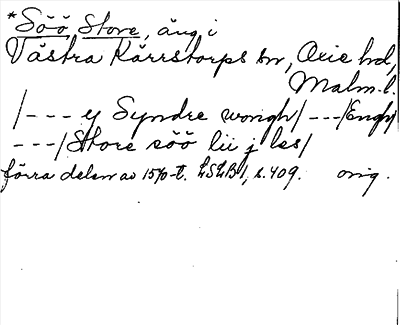 *Söö, Store, äng i
Västra Kärrstorps sn, Oxie hd,
Malm.l.
/--- y Syndre wongh/---/Engh/
---/Store söö lii j les/
förra delen av 1570-t. LSLB1, s. 409. orig.